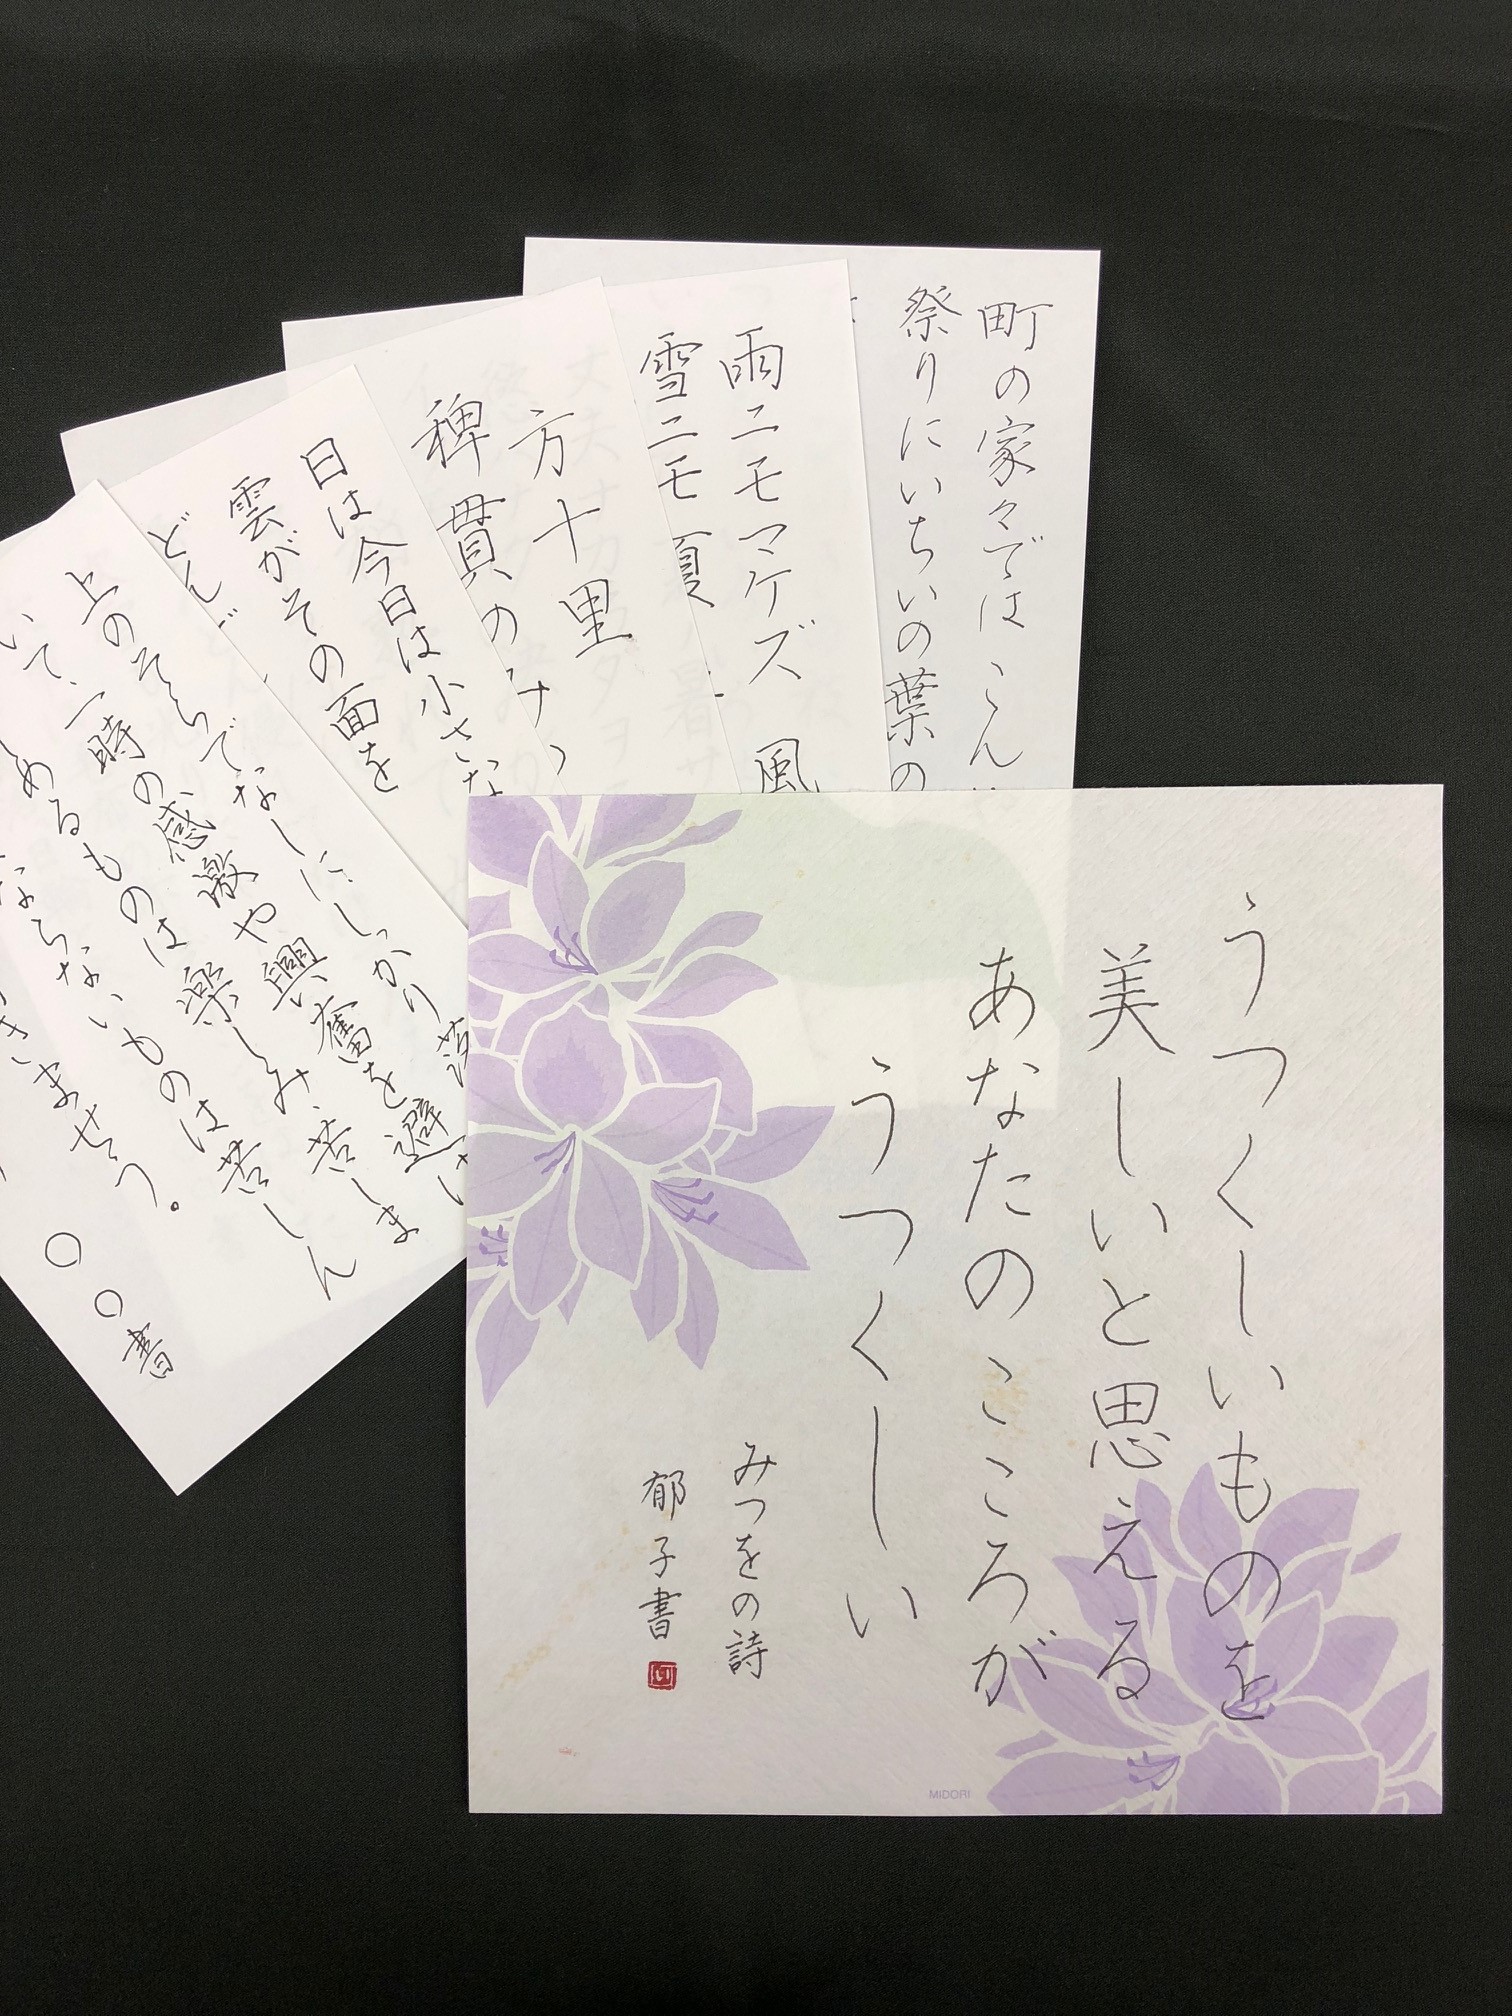 うつくしいものを
美しいと思える
あなたのこころが
うつくしい
みつをの詩
郁子書
MIDORI
町の家々ではこん
祭りにいちいの葉の
雨ニモマケズ 風
雪ニモ 夏
方十里
稗貫のみ
日は今日は小さな
雲がその面を
どんど
上のそらでなしに、しっかり落
いて、一時の感激や興奮を避け
しめるものは楽しみ、苦しま
ならないものは苦しん
きませう。
〇〇書